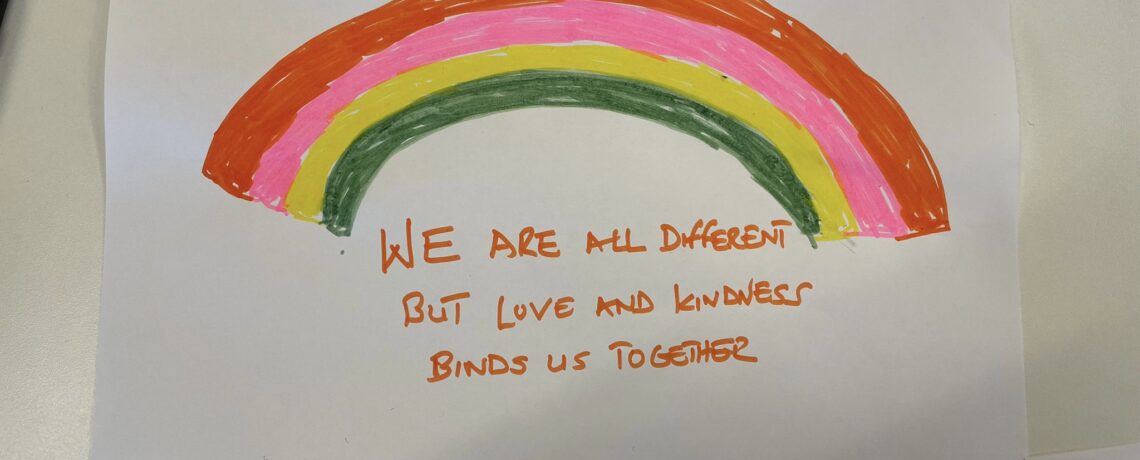 WE ARE ALL DIFFERENT
BUT LOVE AND KINDNESS
BINDS US TOGETHER